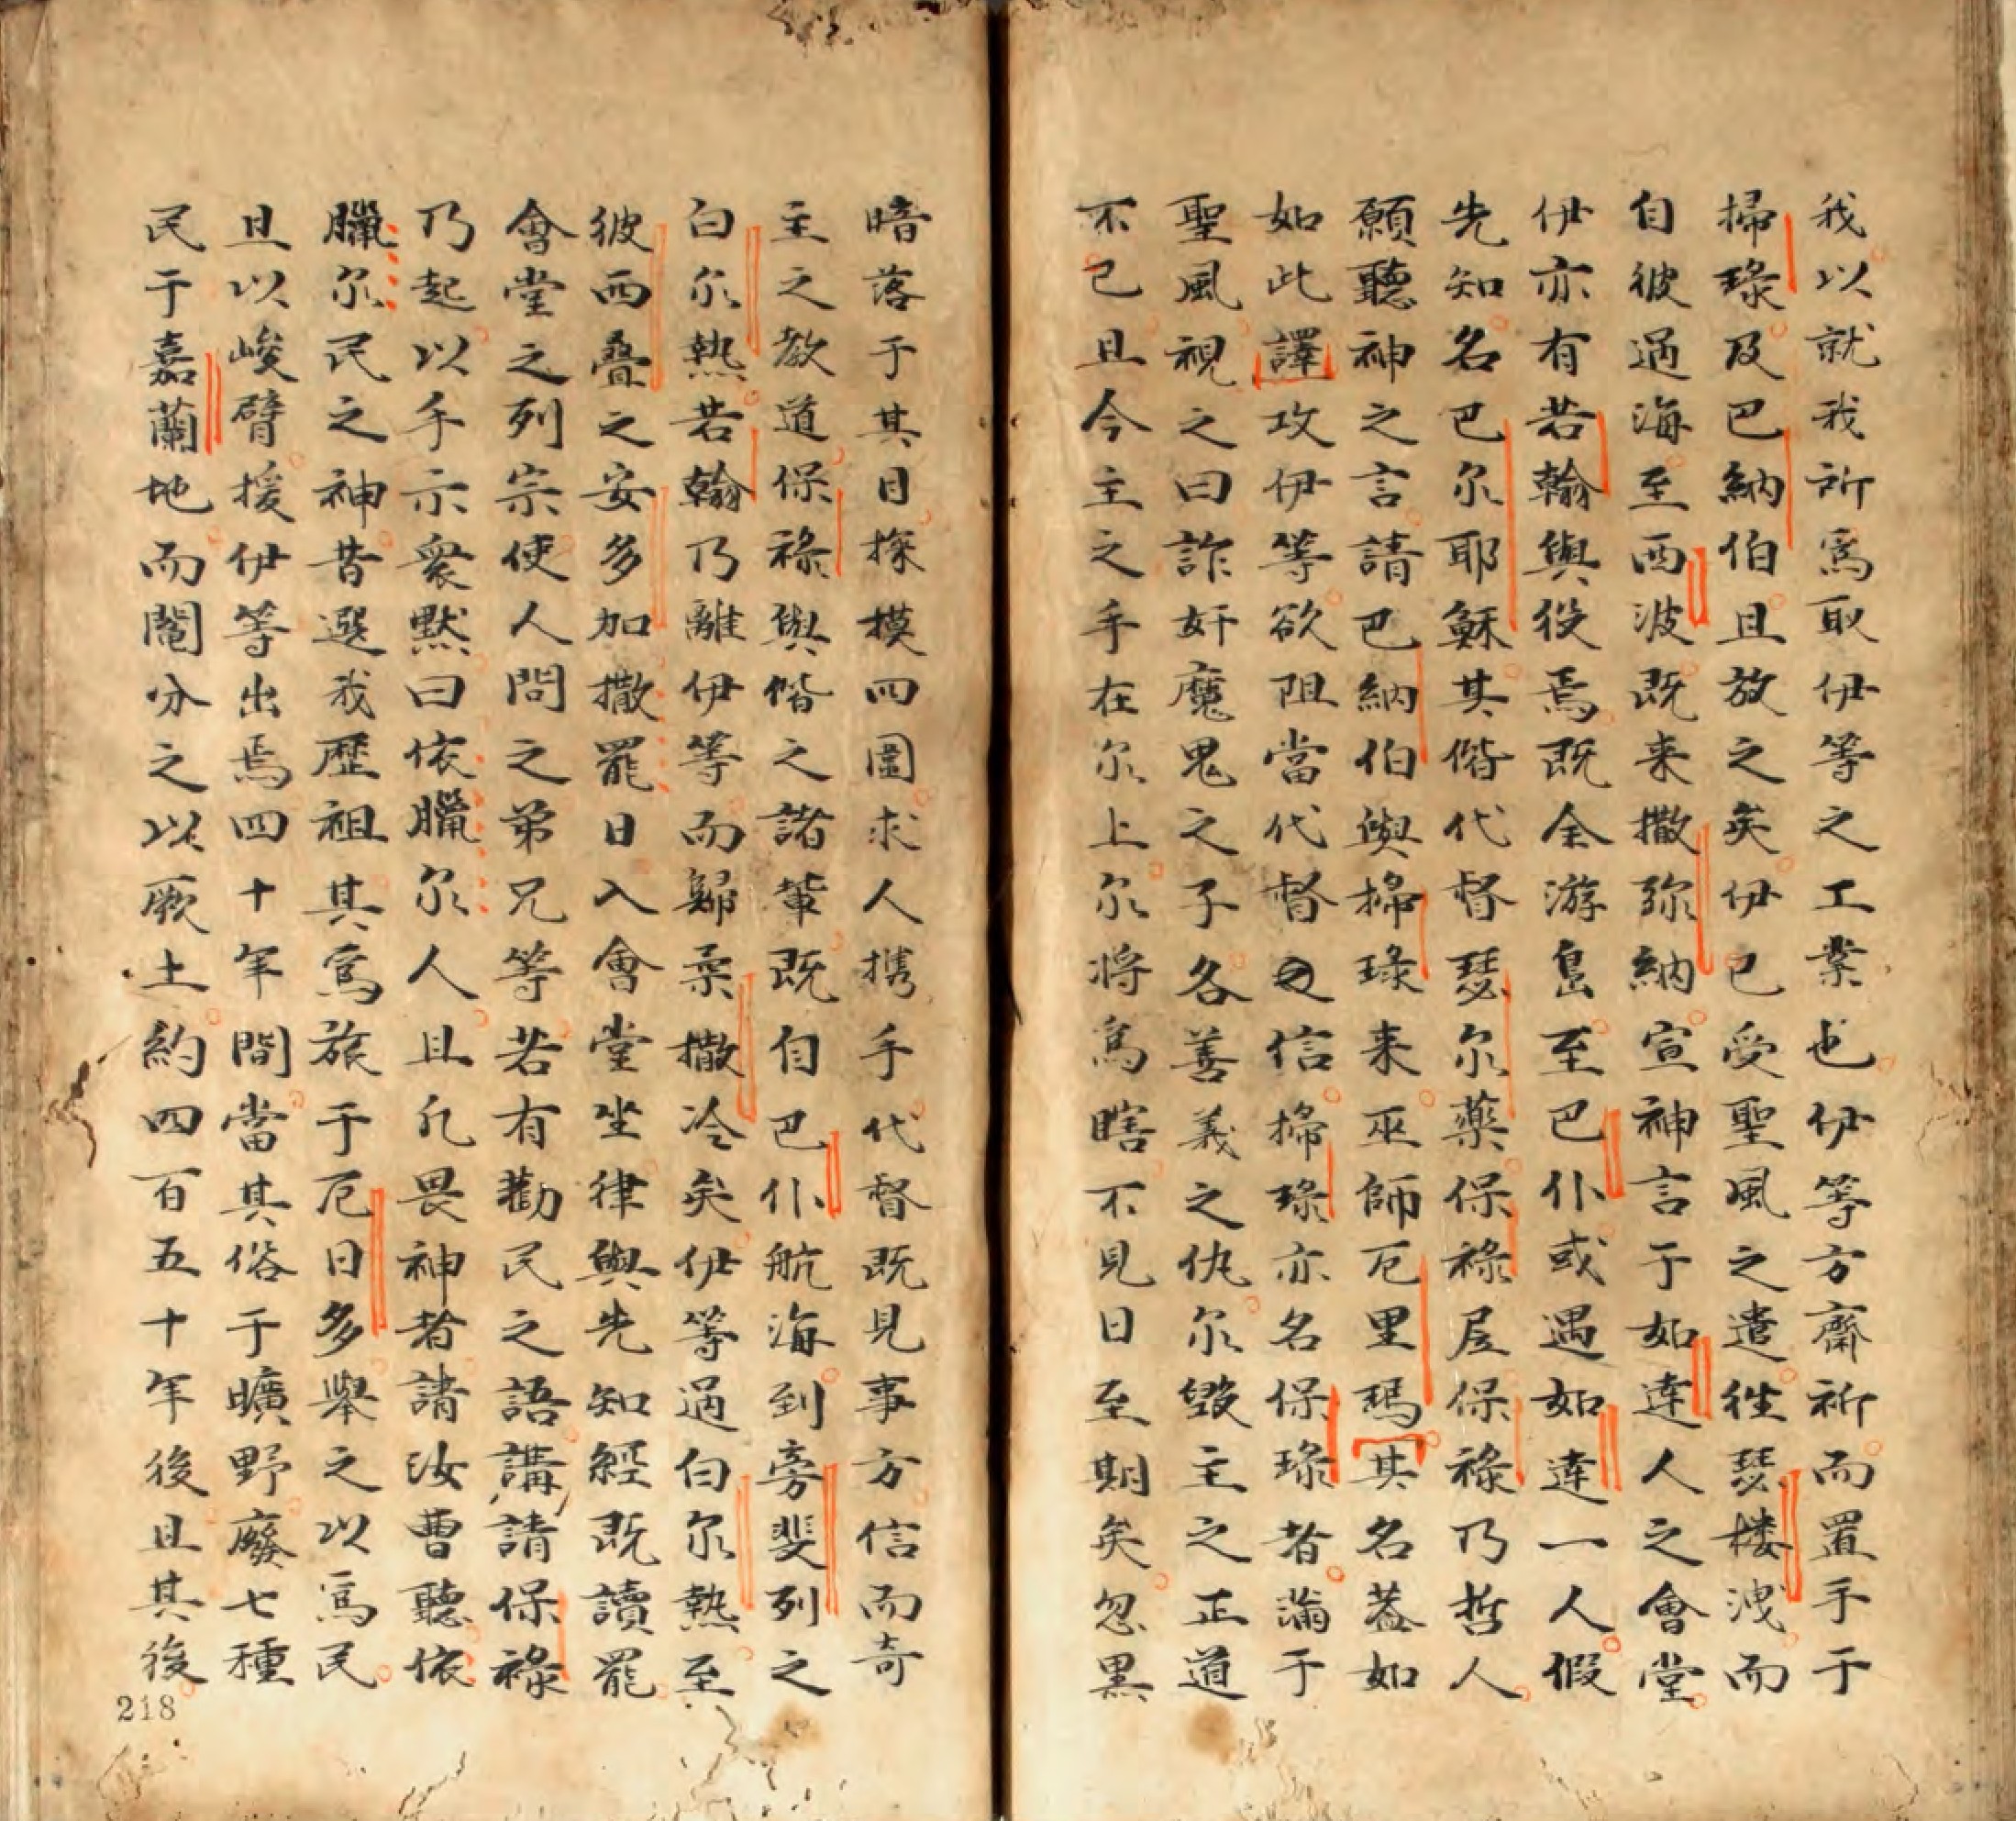 我以就我所為取伊等之工業也伊等方齋祈而置手于
掃琭及巴納伯且放之矣伊已受聖風之遣徃瑟楼洩而
自彼過海至西波既来撒弥納宣神言于如達人之會堂
伊亦有若翰與役焉既全游島至巴仆或遇如達一人假
先知名巴尔耶穌其偕代督瑟尔藥保祿㞐保祿乃哲人
願聽神之言請巴納伯與掃琭来巫師厄里瑪其名葢如
如此譯攻伊等欲阻當代督之信掃琭亦名保琭者滿于
聖風視之曰詐奸魔鬼之子各善義之仇尔毀主之正道
不已且今主之手在尔上尔将為瞎不見日至期矣忽黑
暗落于其目探摸四圖求人携手代督既見事方信而奇
主之教道保祿與偕之諸軰既自巴仆航海到旁斐列之
白尔熱若翰乃離伊等而歸柔撒冷矣伊等過白尔熱至
彼西叠之安多加撒罷日入會堂坐律與先知經既讀罷
會堂之列宗使人問之弟兄等若有勸民之語講請保祿
乃起以手示衆默曰依臘尔人且凢畏神者請汝曹聽依
臘尔民之神昔選我歷祖其為旅于厄日多舉之以為民
且以峻臂援伊等出焉四十年間當其俗于曠野廢七種
民于嘉蘭地而鬮分之以厥土約四百五十年後且其後
218